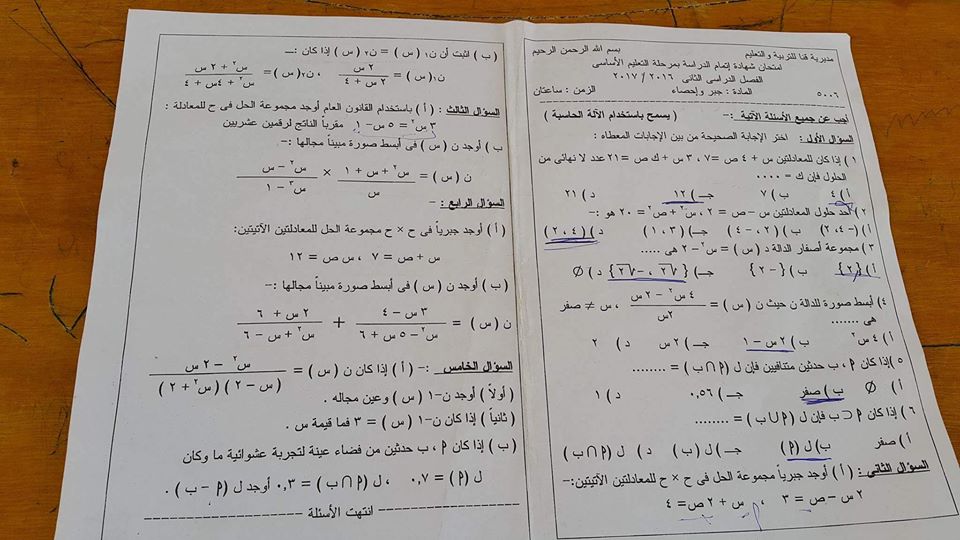 بسم الله الرحمن الرحيم
مديرية قنا للتربية والتعليم
امتحان شهادة إتمام الدراسة بمرحلة التعليم الأساسى
الفصل الدراسى الثانى ٢٠١٦ / ٢٠١٧
٥٠٠٦ المادة : جبر وإحصاء الزمن : ساعتان
أجب عن جميع الأسئلة الآتية :- ( يسمح باستخدام الآلة الحاسبة )
السؤال الأول : اختر الإجابة الصحيحة من بين الإجابات المعطاه :
١ ) إذا كان للمعادلتين س + ٤ ص = ٧ ، ٣ س + ك ص = ٢١ عدد لا نهائى من
الحلول فإن ك = ٠٠٠٠
أ ) ٤ ب ) ٧ جـ ) ١٢ د ) ٢١
٢ ) أحد حلول المعادلتين س – ص = ٢ ، س٢ + ص٢ = ٢٠ هو :-
أ ) ( -٤ ، ٢ ) ب ) ( ٢ ، - ٤ ) جـ ) ( ٣ ، ١ ) د ) ( ٤ ، ٢ )
٣ ) مجموعة أصفار الدالة د ( س ) = س٢ – ٢ هى .....
أ ) { ٢ } ب ) { - ٢ } جـ ) { √٢ ، -√٢ } د ) Ø
٤) أبسط صورة للدالة ن حيث ن ( س ) = ٤ س٢ – ٢ س / ٢س ، س ≠ صفر
هى .......
أ ) ٤ س٢ ب ) ٢ س – ١ جـ ) ٢ س د ) ٢
٥ )إذا كان م ، ب حدثين متنافيين فإن ل ( م ∩ ب ) = ........
أ ) Ø ب ) صفر جـ ) ٠,٥٦ د ) ١
٦ ) إذا كان م ⊂ ب فإن ل ( م ∪ ب ) = ........
أ ) صفر ب) ل ( م ) جـ ) ل ( ب ) د ) ل ( م ∩ ب )
السؤال الثانى : ( أ ) أوجد جبرياً مجموعة الحل فى ح × ح للمعادلتين الآتيتين:-
٢ س – ص = ٣ ، س + ٢ ص = ٤
( ب ) اثبت أن ن١ ( س ) = ن٢ ( س ) إذا كان :ـــ
ن١( س ) = ٢ س / ٢ س + ٤ ، ن٢( س ) = س٢ + ٢ س / س٢ + ٤س + ٤
السؤال الثالث : ( أ ) باستخدام القانون العام أوجد مجموعة الحل فى ح للمعادلة :
٣ س٢ = ٥ س – ١ مقرباً الناتج لرقمين عشريين
ب ) أوجد ن ( س ) فى أبسط صورة مبيناً مجالها :-
ن ( س ) = س٢ + س + ١ / س × س٢ – س / س٣ – ١
السؤال الرابع :-
( أ ) أوجد جبرياً فى ح × ح مجموعة الحل للمعادلتين الآتيتين:
س + ص = ٧ ، س ص = ١٢
( ب ) أوجد ن ( س ) فى أبسط صورة مبيناً مجالها :-
ن ( س ) = ٣ س – ٤ / س٢ – ٥ س + ٦ + ٢ س + ٦ / س٢ + س – ٦
السؤال الخامس :- ( أ ) إذا كان ن ( س ) = س٢ – ٢ س / ( س – ٢ ) ( س٢ + ٢ )
( أولاً ) أوجد ن-١ ( س ) وعين مجاله .
( ثانياً ) إذا كان ن-١ ( س ) = ٣ فما قيمة س .
( ب ) إذا كان م ، ب حدثين من فضاء عينة لتجربة عشوائية ما وكان
ل ( م ) = ٠,٧ ، ل ( م ∩ ب ) = ٠,٣ أوجد ل ( م – ب ) .
انتهت الأسئلة